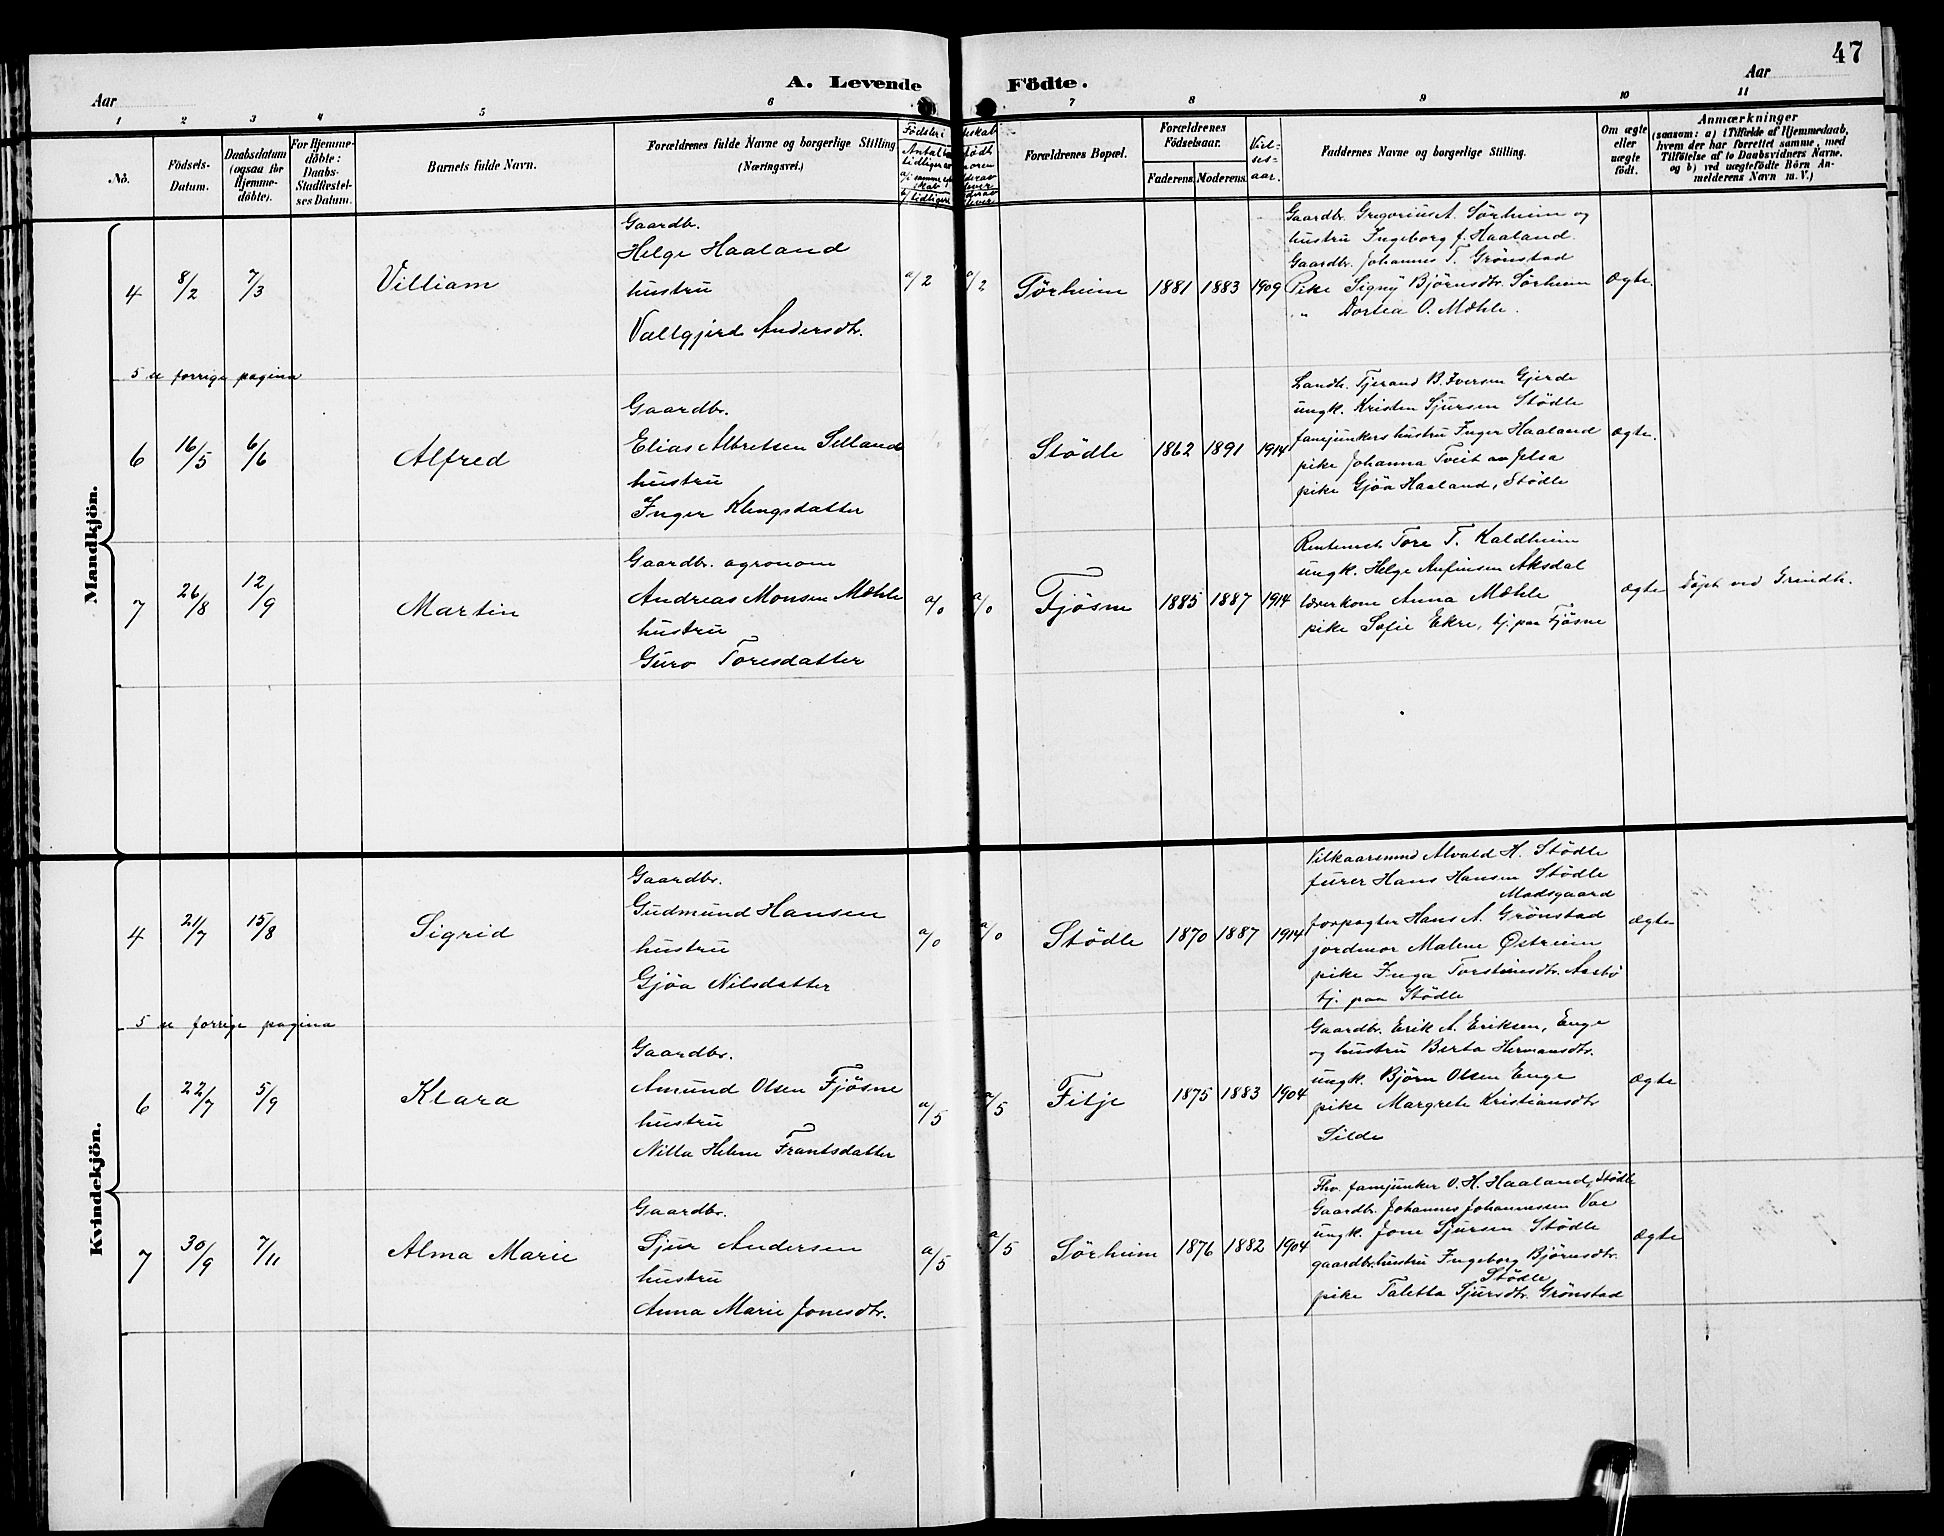 47
A. Levende Födte.
Aar
Aar
1 2 3 4 5 6 7 8 9 10 11
No.
Födsels-Datum.
Daabsdatum (ogsaa for Hjemme-döbte).
For Hjemme-döbte: Daabs-Stadfæstel-ses Datum.
Barnets fulde Navn.
Forældrenes fulde Navne og borgerlige Stilling
(Næringsvei.)
Forældrenes Bopæl.
Forældrenes Födselsaar.
Faderens. Moderens.
Viel-ses-aar.
Faddernes Navne og borgerlige Stilling.
Om ægte eller uægte födt.
Anmærkninger
(saasom: a) i Tilfælde af Hjemmedaab, hvem der har forrettet samme, med Tilföielse af to Daabsvidners Navne, og b) ved uægtefödte Börn An-melderens Navn m. V.)
Mandkjön.
4 8/2 7/3 Villiam
Gaardbr.
Helge Haaland
hustru
Vallgjerd Andersdtr.
a/2 a/2 Sörheim 1881 1883 1909
Gaardbr. Gregorius A. Sörheim og
hustru Ingeborg f. Haaland.
Gaardbr. Johannes T. Grönstad
Pike Signy Björnsdtr. Sörheim
" Dortea O. Mæhle.
Ægte.
5 se forrige pagina
6 16/5 6/6 Alfred
Gaardbr.
Elias Albretsen Selland
hustru
Inger Klengsdatter
Stödle 1862 1891 1914
Landh. Tjerand B. Iversen Gjerde
ungk. Kristen Sjursen Stödle
fanejunkers hustru Inger Haaland
pike Johanna Tveit av Jelsa
pike Gjöa Haaland, Stödle
ægte.
7 26/8 12/9 Martin
Gaardbr. agronom
Andreas Monsen Mæhle
hustru
Guro Toresdatter
a/0 a/0 Fjösne 1885 1887 1914
Rentenist. Tore T. Kaldheim
ungk. Helge Anfinsen Aksdal
lærerkone Anna Mæhle
pike Sofie Ekre, tj. paa Fjösne
ægte
Döpt ved Grindh.
Kvindekjön.
4 21/7 15/8 Sigrid
Gaardbr.
Gudmund Hansen
hustru
Gjöa Nilsdatter
a/0 a/0 Stödle 1870 1887 1914
Vilkaarsmand Alvald H. Stödle
furer Hans Hansen Stödle
Madsgaard
forpagter Hans A. Grönstad
jordmor Malene Østreim
pike Inga Torsteinsdtr. Aarbö
tj. paa Stödle
ægte
5 se forrige pagina
6 22/7 5/9 Klara
Gaardbr.
Amund Olsen Fjösne
hustru
Nilla Helene Frantsdatter
a/5 a/5 Fitje 1875 1883 1904
Gaardbr. Erik A. Eriksen, Enge
og hustru Berta Hermansdtr.
ungk. Björn Olsen Enge
pike Margrete Kristiansdtr
Silde
ægte
7 30/9 7/11 Alma Marie
Gaardbr.
Sjur Andersen
hustru
Anna Marie Jonesdtr.
a/5 a/5 Sörheim 1876 1882 1904
Fhv. fanejunker O. H. Haaland, Stödle
Gaardbr. Johannes Johannessen Vae
ungk. Jone Sjursen Stödle
gaardbr.hustru Ingeborg Björnsdtr.
Stödle
pike Taletta Sjursdtr. Grönstad
ægte